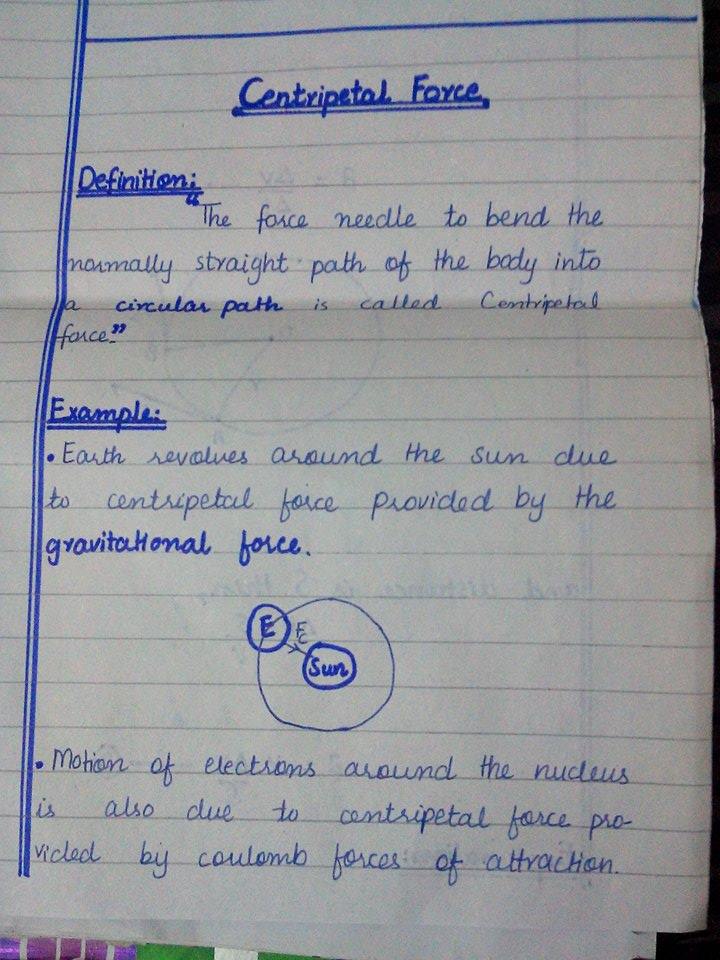 Centripetal Force
Definition:
"The force needle to bend the
normally straight path of the body into
a circular path is called Centripetal
force."
Example:
• Earth revolves around the sun due
to centripetal force provided by the
gravitational force.
E
Fc
Sun
• Motion of electrons around the nucleus
is also due to centripetal force pro-
vided by coulomb forces of attraction.